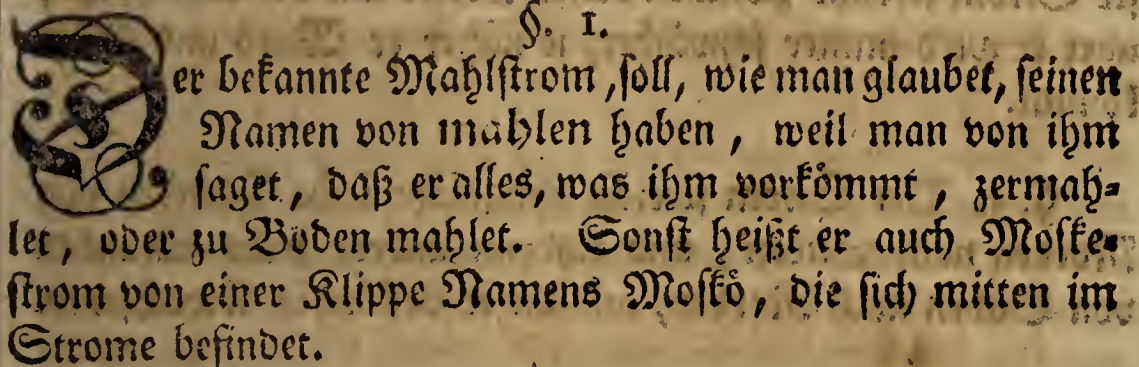 §. 1.
Der bekannte Mahlstrom, soll, wie man glaubet, seinen
Namen von mahlen haben, weil man von ihm
saget, daß er alles, was ihm vorkömmt, zermah-
let, oder zu Boden mahlet. Sonst heißt er auch Moske-
strom von einer Klippe Namens Moskö, die sich mitten im
Strome befindet.